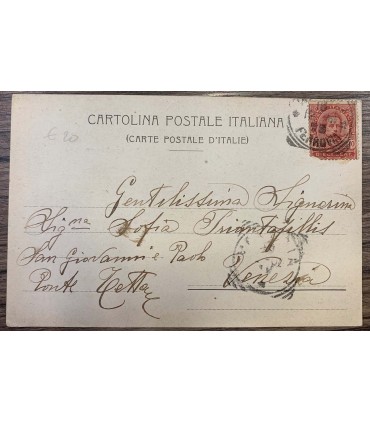 CARTOLINA POSTALE ITALIANA
(CARTE POSTALE D'ITALIE)
€20
Gentilissima Signorina
Signa Sofia Triantafillis
San Giovanni e Paolo
Ponte Tetta
Venezia